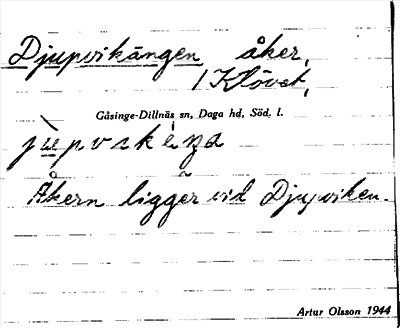 Djupvikängen åker,
/ Klövet,
Gåsinge-Dillnäs sn, Daga hd, Söd. l.
Åkern ligger vid Djupviken.
Artur Olsson 1944